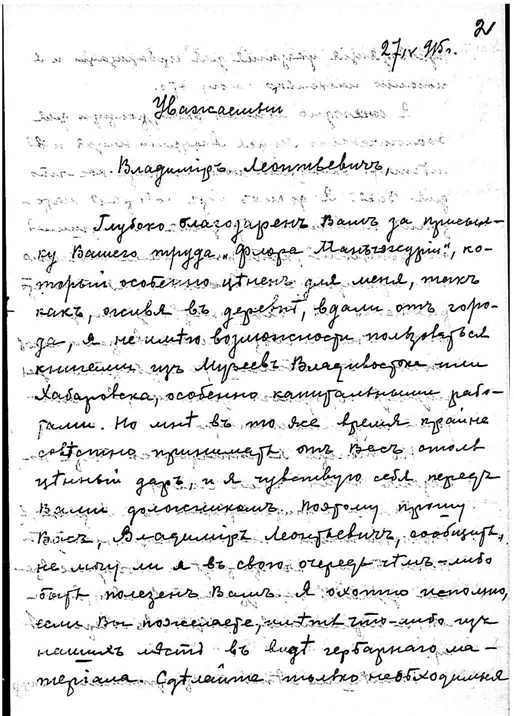 2
27/IV 915г.
Уважаемый
Владиміръ Леонтьевичъ,
Глубоко благодаренъ Вамъ за присыл-
ку Вашего труда „Флора Маньчжуріи", ко-
торый особенно цѣненъ для меня, такъ
какъ, живя въ деревнѣ, вдали отъ горо-
да, я не имѣю возможности пользоваться
книгами изъ Музеевъ Владивостока или
Хабаровска, особенно капитальными рабо-
тами. Но мнѣ въ то же время крайне
совѣстно принимать отъ Васъ столь
цѣнный даръ, и я чувствую себя передъ
Вами должникомъ. Поэтому прошу
Васъ, Владиміръ Леонтьевичъ, сообщить,
не могу ли я въ свою очередь чѣмъ-либо
быть полезенъ Вамъ. Я охотно исполню,
если Вы пожелаете, имѣть что-либо изъ
нашихъ мѣстъ въ видѣ гербарнаго ма-
теріала. Сдѣлайте только необходимыя